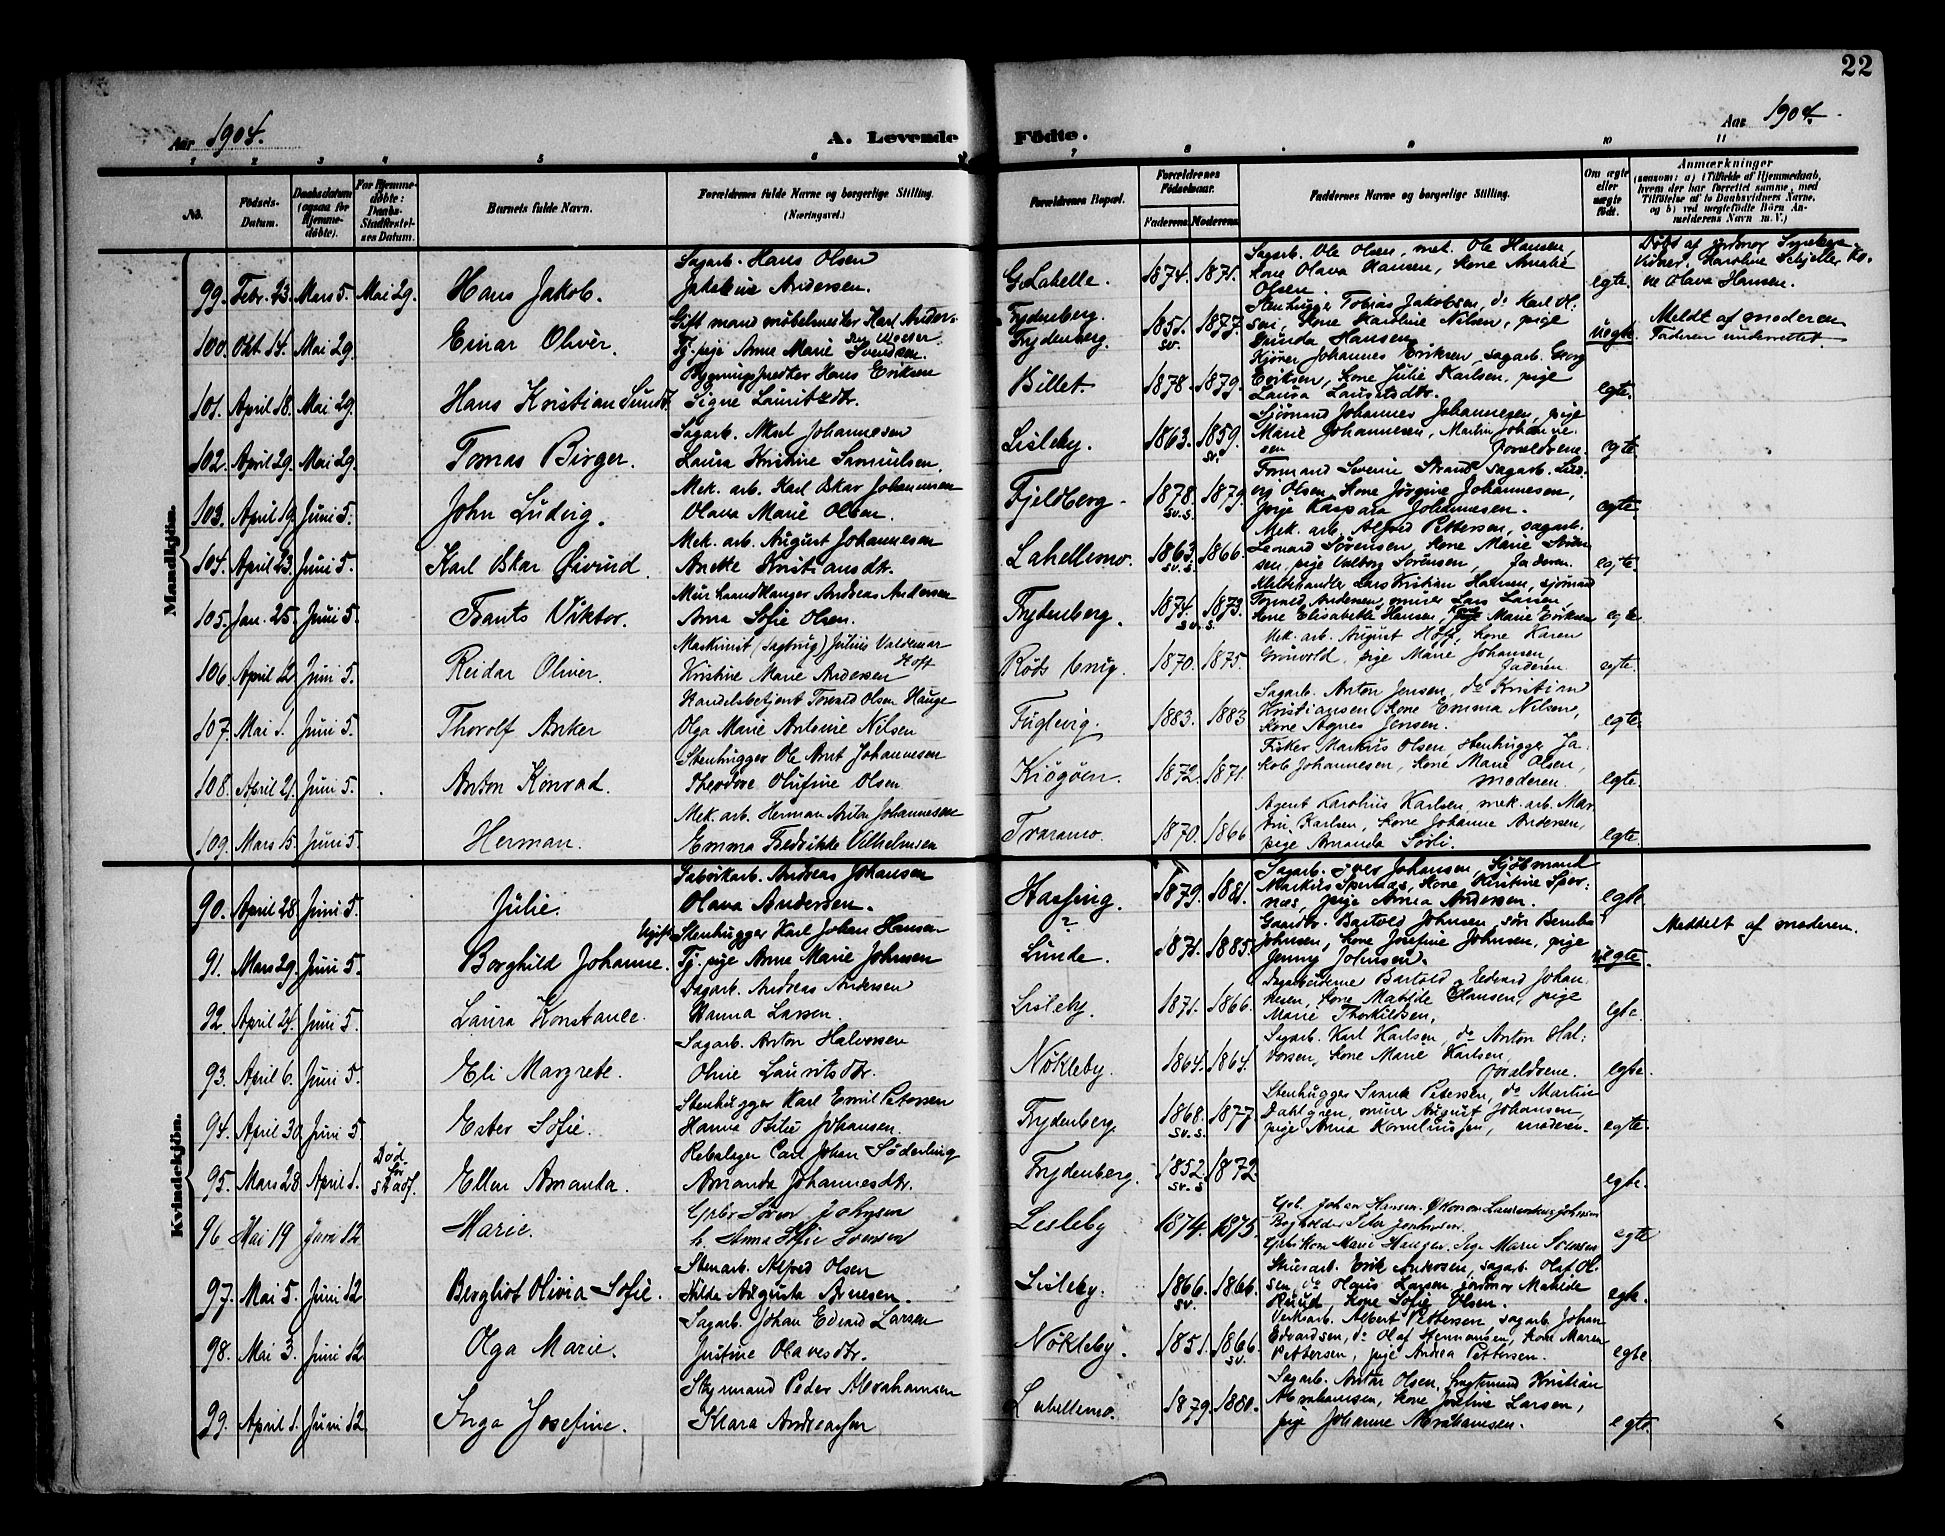 22
Aar 1904.
A. Levende Födte.
Aar 1904.
1 2 3 4 5 6 7 8 9 10 11
No.
Födsels-Datum.
Daabsdatum (ogsaa for Hjemme-døbte).
For Hjemme-døbte: Daabs-Stadfæstel-ses Datum.
Barnets fulde Navn.
Forældrenes fulde Navne og borgerlige Stilling. (Næringsvei.)
Forældrenes Bopæl.
Forældrenes Födselsaar.
Faderens. Moderens.
Faddernes Navne og borgerlige Stilling.
Om ægte eller uægte født.
Anmærkninger
(saasom: a) i Tilfælde af Hjemmedaab,
hvem der har forrettet samme, med
Tilföielse af to Daabsvidners Navne,
og b) ved uægtefödte Börn An-
melderens Navn m. V.)
Mandkjön.
99. Febr. 23. Mars 5. Mai 29. Hans Jakob.
Sagarb. Hans Olsen
Andersen.
G. Lahelle. 1874. 1871.
Sagarb. Ole Olsen, mek. Ole Hansen,
Kone Olava Hansen, Kone Amalie
Olsen.
egte.
Döbt af jordmor
Vidner: Karoline Ko-
ne Olava Hansen.
100. Okt. 14. Mai 29. Einar Oliver.
Gift mand möbelmester Karl Anders-
sen
Tj. pige Anne Marie Svendsen.
Frydenberg.
Frydenberg.
1851. 1877.
sv.
Stenhugger Tobias Jakobsen, do Karl Ol-
sen, Kone Karoline Nilsen, pige
Hansen.
uegte
Meldt af moderen
Faderen underrettet.
101. April 18. Mai 29. Hans Kristian Sundt.
Hans Eriksen
Signe Lauritzdtr.
Billet. 1878. 1879.
Kjörer Johannes Eriksen, sagarb. Georg
Eriksen, Kone Julie Karlsen, pige
Laura Lauritsdtr.
egte.
102. April 29. Mai 29. Tomas Birger.
Sagarb. Johannesen
Laura Kristine Samuelsen.
Lisleby. 1863. 1859.
sv.
Sjömand Johannes Johannesen, pige
Marie Johannesen, Martin Johanne-
sen Forældrene.
egte
103. April 19. Juni 5. John Ludvig.
Mek. arb. Karl Oskar Johannesen
Olava Marie Olsen.
Fjeldberg. 1878. 1879.
sv. s.
Formand Severin Strand, sagarb. Lud-
vig Olsen, Kone Jörgine Johannesen,
pige Kaspara Johannesen.
egte.
104. April 23. Juni 5. Karl Oskar Öivind.
Mek. arb. August Johannesen
Anette Kristiansdtr.
Lahellemo. 1863. 1866.
sv. s.
Mek. arb. Alfred Pettersen, sagarb.
Leonard Sörensen, Kone Marie
sen, pige Valborg Sörensen, faderen.
egte.
105. Jan. 25. Juni 5. Frants Viktor.
Murhaandlanger Andreas Andersen
Anna Sofie Olsen.
Frydenberg. 1874. 1873.
sv. s.
Melkehandler Lars Kristian Hansen, sjömand
Torvald Andersen, murer Lars Larsen
Kone Elisabeth Hansen, Kone Marie Eriksen
egte
106. April 12. Juni 5. Reidar Oliver.
Maskinist (Sagbrug) Julius Valdemar
Hoff
Kristine Marie Andersen
Röds brug. 1870. 1875.
Mek. arb. August Hoff, Kone Karen
Grönvold, pige Marie Johansen,
faderen.
egte.
107. Mai 1. Juni 5. Thorolf Anker
Handelsbetjent Torvald Olsen Hauge
Olga Marie Antonie Nilsen
Fuglevig. 1883. 1883
Sagarb. Anton Jensen, do Kristian
Kristiansen, Kone Emma Nilsen,
Kone Agnes Jensen.
egte.
108. April 21. Juni 5. Anton Konrad.
Stenhugger Ole Arnt Johannesen
Theodore Olufine Olsen
Kiögöen. 1872. 1871.
Fisker Markus Olsen, Stenhugger Ja-
kob Johannesen, Kone Marie Olsen,
moderen.
egte.
109. Mars 15. Juni 5. Herman.
Mek. arb. Herman Anton Johannesen
Emma Fredrikke Vilhelmsen
Traramo. 1870. 1866
Agent Karolius Karlsen, mek. arb. Mar-
tin Karlsen, Kone Johanne Andersen,
pige Amanda Sörli.
egte.
Kvindekjön.
90. April 28. Juni 5. Julie.
Fabrikarb. Andreas Johansen
Olava Andersen.
Hassing. 1879. 1881.
Sagarb. Iver Johansen, Kjöbmand
Markus Spernæs, Kone Kristine Sper-
næs, pige Anna Andersen.
egte
91. Mars 29. Juni 5. Borghild Johanne.
Ugift Stenhugger Karl Johan Hansen
Tj. pige Anne Marie Johnsen
?
Lunde. 1871. 1885.
Gaardbr. Bartold Johnsen, sön Bernt
Johnsen, Kone Josefine Johnsen, pige
Jenny Johnsen.
uegte.
Meddelt af moderen.
92. April 24. Juni 5. Laura Konstance.
Sagarb. Andreas Andersen
Hanna Larsen.
Lisleby. 1871. 1866.
Sagarbeiderne Bartold o Edvard Johan-
nesen, Kone Matilde Hansen, pige
Marie Thorkildsen.
egte.
93. April 6. Juni 5. Eli Margrete.
Sagarb. Anton Halvorsen
Oline Lauritsdtr.
Nökleby. 1864. 1864.
Sagarb. Karl Karlsen, do Anton Hal-
vorsen, Kone Marie Karlsen,
Forældrene.
egte.
94. April 30. Juni 5. Ester Sofie.
Stenhugger Karl Emil Petersen
Hanna Otilie Johansen.
Frydenberg. 1868. 1877
sv. s.
Stenhugger Frank Petersen, do Martin
Dahlgren, murer August Johansen,
pige Anna Korneliussen, moderen.
egte.
95. Mars 28. April 1. Död för stadf. Ellen Amanda.
Rebslager Carl Johan Söderling
Amanda Johannesdtr.
Frydenberg. 1852. 1872
sv. s
egte.
96 Mai 19 Juni 12. Marie.
Sören Johnsen
h. Anna Sofie Svensen
Lisleby 1874. 1875.
Johan Hansen. Økonom Laurentius Johnsen
Bogholder Peter
Kone Marie Pige Marie Sörensen
egte
97. Mai 5. Juni 12 Bergliot Olivia Sofie.
Stenarb. Alfred Olsen
Hilda Augusta Arnesen.
Lisleby. 1866. 1866.
sv.
Erik Andersen, sagarb. Olaf Ol-
sen, do Hans Larsen, jordmor Matilde
Ruud, Kone Sofie Olsen.
egte.
98. Mai 3. Juni 12 Olga Marie.
Sagarb. Johan Edvard Larsen
Justine Olavesdtr.
Nökleby. 1851. 1866.
sv.
Verkarb. Albert Pettersen, sagarb. Johan
Edvardsen, do Olaf Hermansen, Kone Maren
Pettersen, pige Andrea Pettersen.
egte
99. April 1. Juni 12 Inga Josefine.
Styrmand Peder Abrahamsen
Klara Andreassen
Lahellemo. 1879. 1880.
Sagarb. Anton Olsen, Kristian
Abrahamsen, Kone Josefine Larsen,
pige Johanne Abrahamsen.
egte.